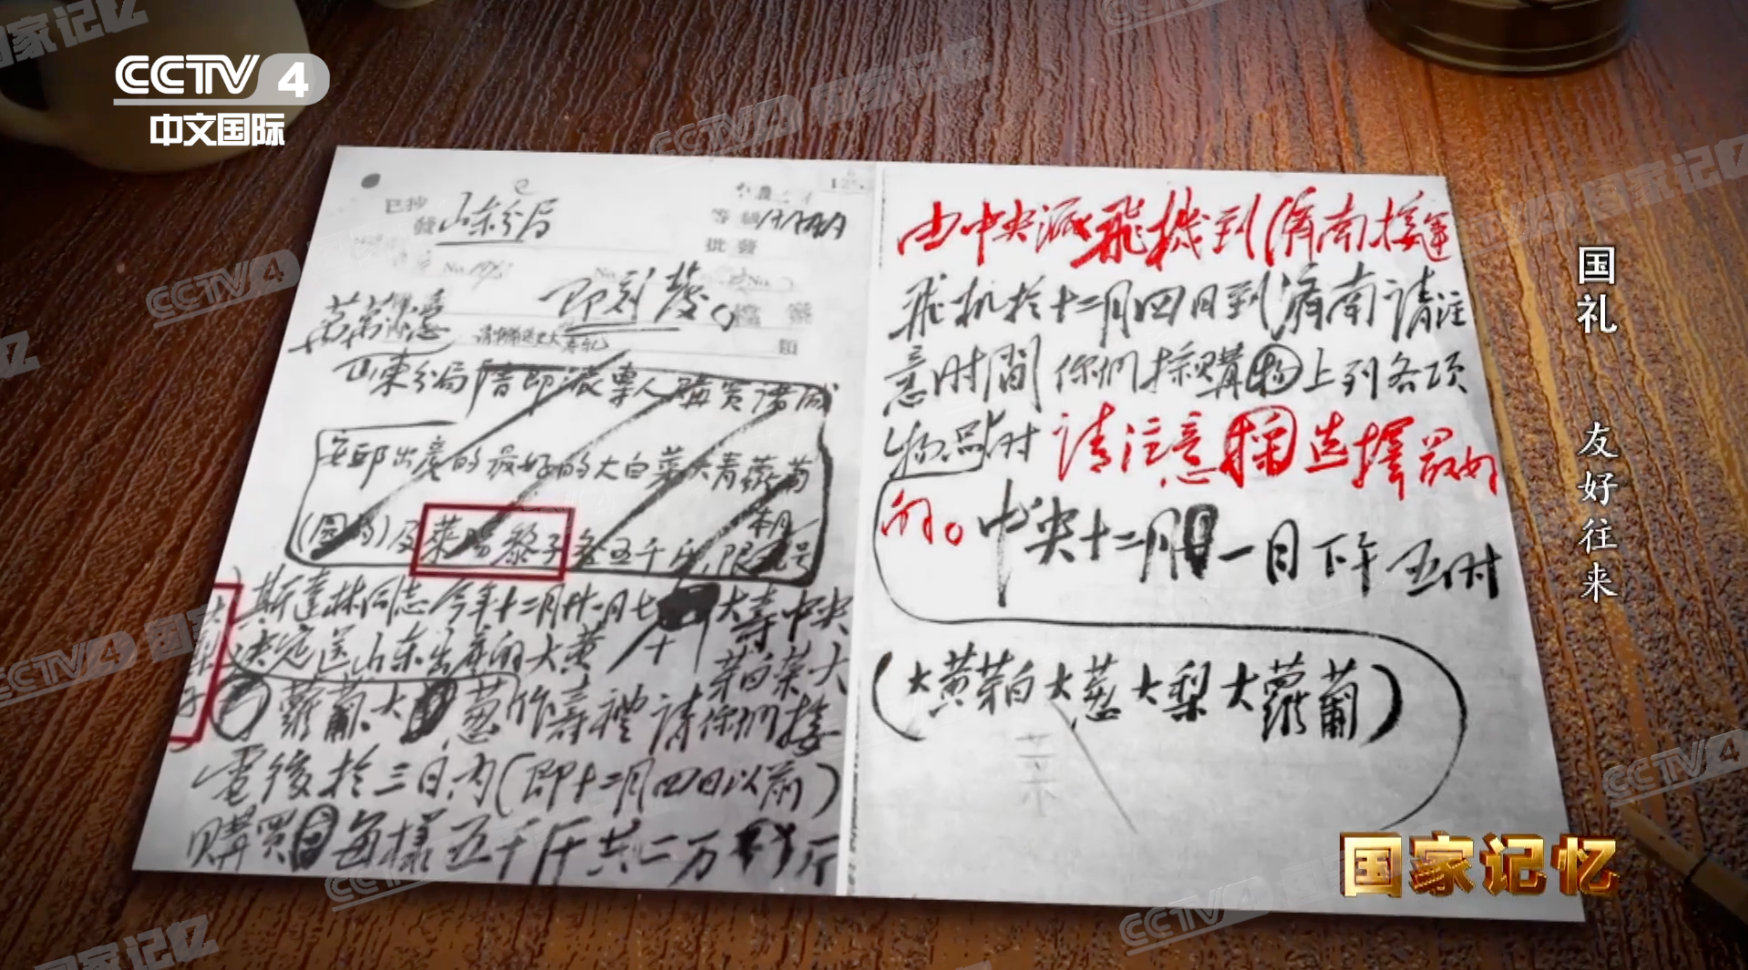 CCTV 4
中文国际
已抄
發 山东分局
等級
批發
No.
No.
即刻發。
檔案
山東分局 請即派專人購買诸城
安邱出産的最好的大白菜大青蘿蔔
及莱陽黎子各五千斤,限
斯達林同志今年十二月廿一日七十大壽中央
决定送山东出産的大黄芽白菜大
大梨子
蘿蔔大葱作壽禮請你們接
電後於三日內(即十二月四日以前)
購買每樣五千斤共二万斤
由中央派飛機到濟南接運
飛机於十二月四日到濟南請注
意时間 你們採購上列各項
物品时请注意選擇最好
的。中央十二月一日下午五时
(大黄芽白大葱大梨大蘿蔔)
菜
国礼 友好往来
国家记忆